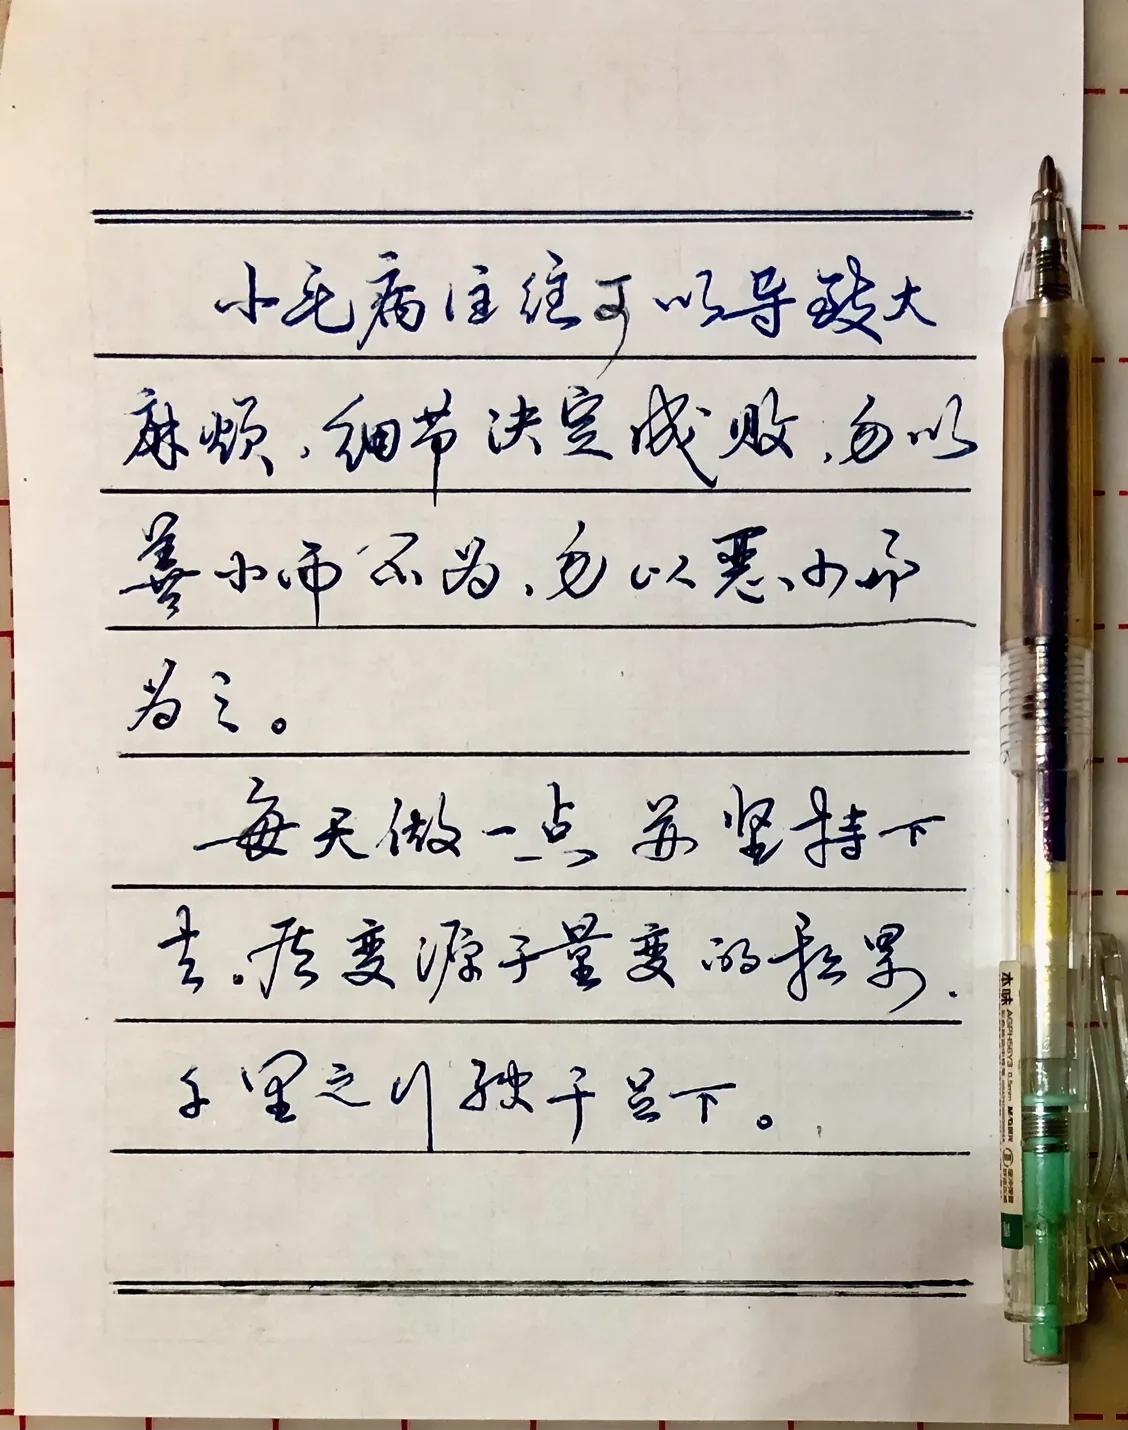 小毛病往往可以导致大
麻烦，细节决定成败，勿以
善小而不为，勿以恶小而
为之。
每天做一点 并坚持下
去。质变源于量变的积累，
千里之行 始于足下。
本味
AGPH56Y3 0.5mm M&G